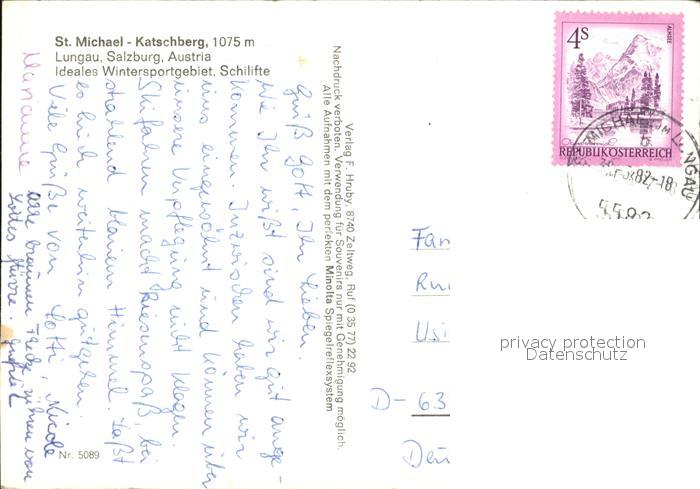 St. Michael - Katschberg, 1075 m
Lungau, Salzburg, Austria
Ideales Wintersportgebiet, Schilifte
4S
ALMSEE
REPUBLIK ÖSTERREICH
ST. MICHAEL IM LUNGAU
82-18
5582
Grüß Gott, Ihr Lieben.
Wie Ihr wißt sind wir gut ange-
kommen. Inzwischen haben wir
uns eingewöhnt und können über
unsere Verpflegung nicht klagen.
Skifahren macht Riesenspaß, bei
strahlend blauem Himmel. Laßt
es Euch weiterhin gutgehen.
Viele Grüße von Lotti, Nicole
Marianne
Verlag F. Hruby, 8740 Zeltweg, Ruf (0 35 77) 22 92
Nachdruck verboten. Verwendung für Souvenirs nur mit Genehmigung möglich.
Alle Aufnahmen mit dem perfekten Minolta Spiegelreflexsystem
Nr. 5089
Fam
D-63
privacy protection
Datenschutz